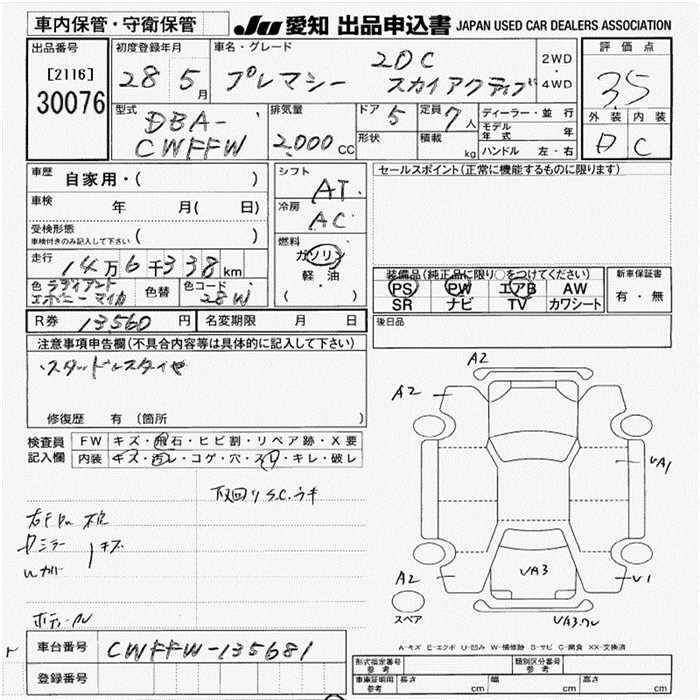 車内保管・守衛保管
JU 愛知 出品申込書 JAPAN USED CAR DEALERS ASSOCIATION
出品番号
[2116]
30076
初度登録年月
28 5月
車名・グレード
20C
プレマシー スカイアクティブ
2WD
4WD
評価点
3.5
外装 内装
D C
型式
DBA-
CWFFW
排気量
2.000cc
ドア 5
形状
定員 7人
積載 kg
ディーラー・並行
モデル年式 年
ハンドル 左・右
車歴
自家用・( )
車検
年 月( 日)
受検形態
車検付きのみ記入して下さい ( )
走行
14万6千338km
色 ラディアント
エボニーマイカ
色替
色コード
28W
シフト
AT
冷房
AC
燃料
ガソリン
軽・油
( )
セールスポイント(正常に機能するものに限ります)
装備品(純正品に限り〇をつけてください)
PS PW エアB AW
SR ナビ TV カワシート
新車保証書
有・無
R券 13560円 名変期限 月 日
後日品
注意事項申告欄(不具合内容等は具体的に記入して下さい)
スタッドレスタイヤ
修復歴 有 (箇所 )
検査員
記入欄
FW キズ・飛石・ヒビ割・リペア跡・X要
内装 キズ・汚レ・コゲ・穴・スレ・キレ・破レ
取回りS.C.ウキ
ミラー
キズ
A2
A2
VA1
A2
VA3
V1
スペア
A-キズ E-エクボ U-凹み W-補修跡 S-サビ C-腐食 XX-交換済
車台番号 CWFFW-135681
登録番号
形式指定番号
参考
類別区分番号
参考
車庫証明用
参考
長さ cm 幅 cm 高さ cm